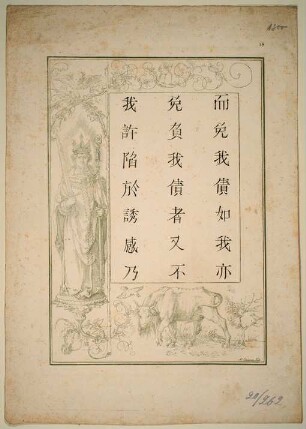 而免我債如我亦
免負我債者又不
我許陷於誘感乃
18
29/262